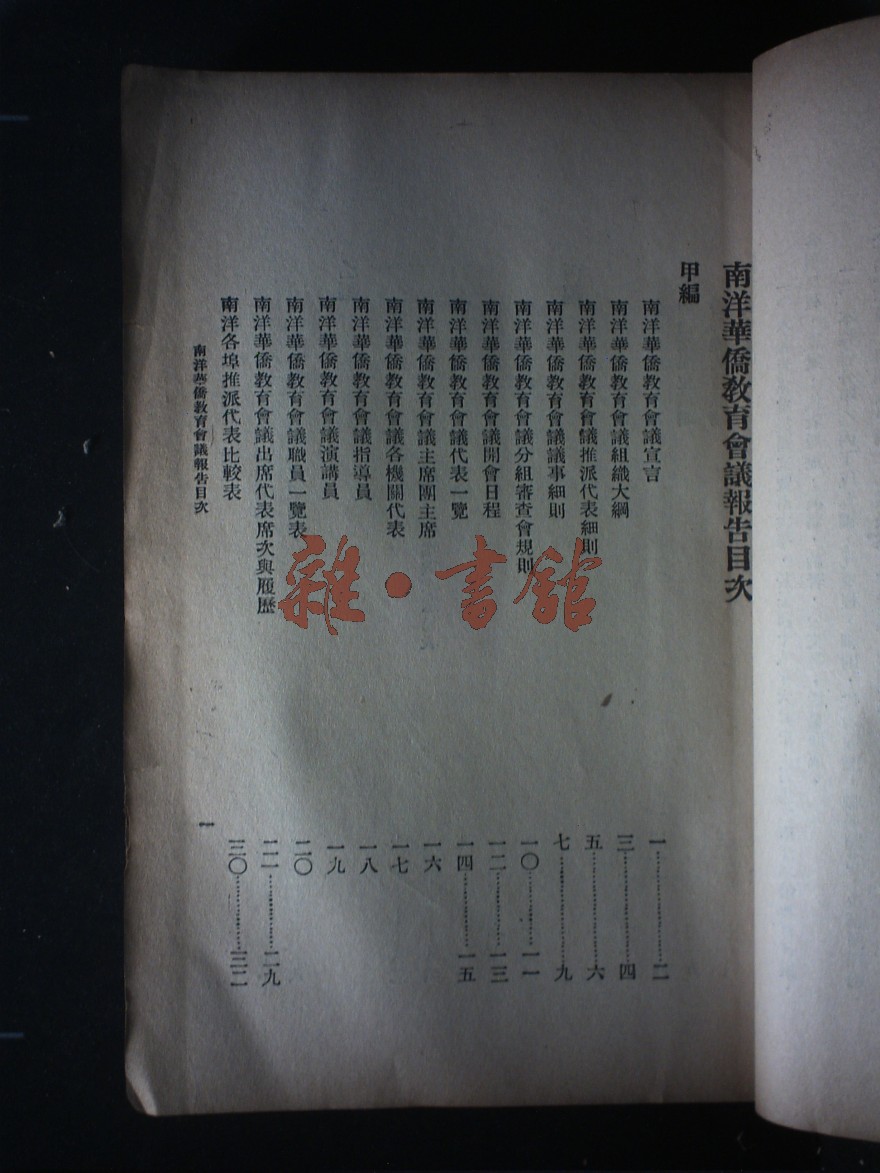 南洋華僑教育會議報告目次
甲編
南洋華僑教育會議宣言 一……二
南洋華僑教育會議組織大綱 三……四
南洋華僑教育會議推派代表細則 五……六
南洋華僑教育會議議事細則 七……九
南洋華僑教育會議分組審查會規則 一〇……一一
南洋華僑教育會議開會日程 一二……一三
南洋華僑教育會議代表一覽 一四……一五
南洋華僑教育會議主席團主席 一六
南洋華僑教育會議各機關代表 一七
南洋華僑教育會議指導員 一八
南洋華僑教育會議演講員 一九
南洋華僑教育會議職員一覽表 二〇
南洋華僑教育會議出席代表席次與履歷 二一……二九
南洋各埠推派代表比較表 三〇……三二
南洋華僑教育會議報告目次
一
雜·書館